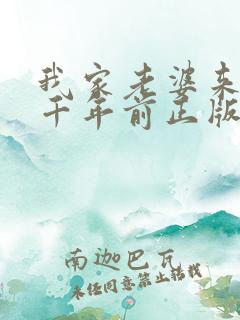 我家老婆来
千年前正版
南迦巴瓦
未经同意禁止转载